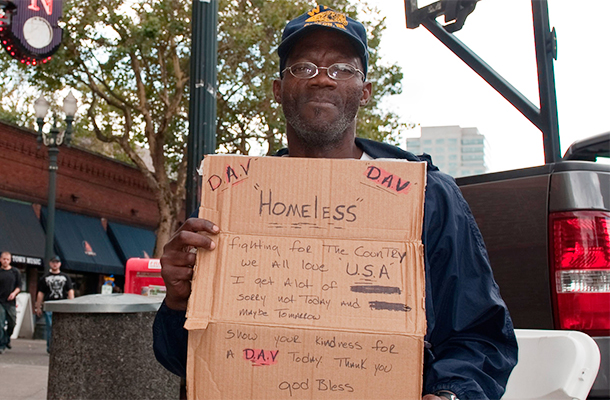 N
TOWN TOWN
D.A.V D.A.V
"Homeless"
fighting for The CounTry
we All love "U.S.A"
I get Alot of
sorry not Today and
maybe Tomorrow
Show your kindness for
A D.A.V Today Thank you
god Bless